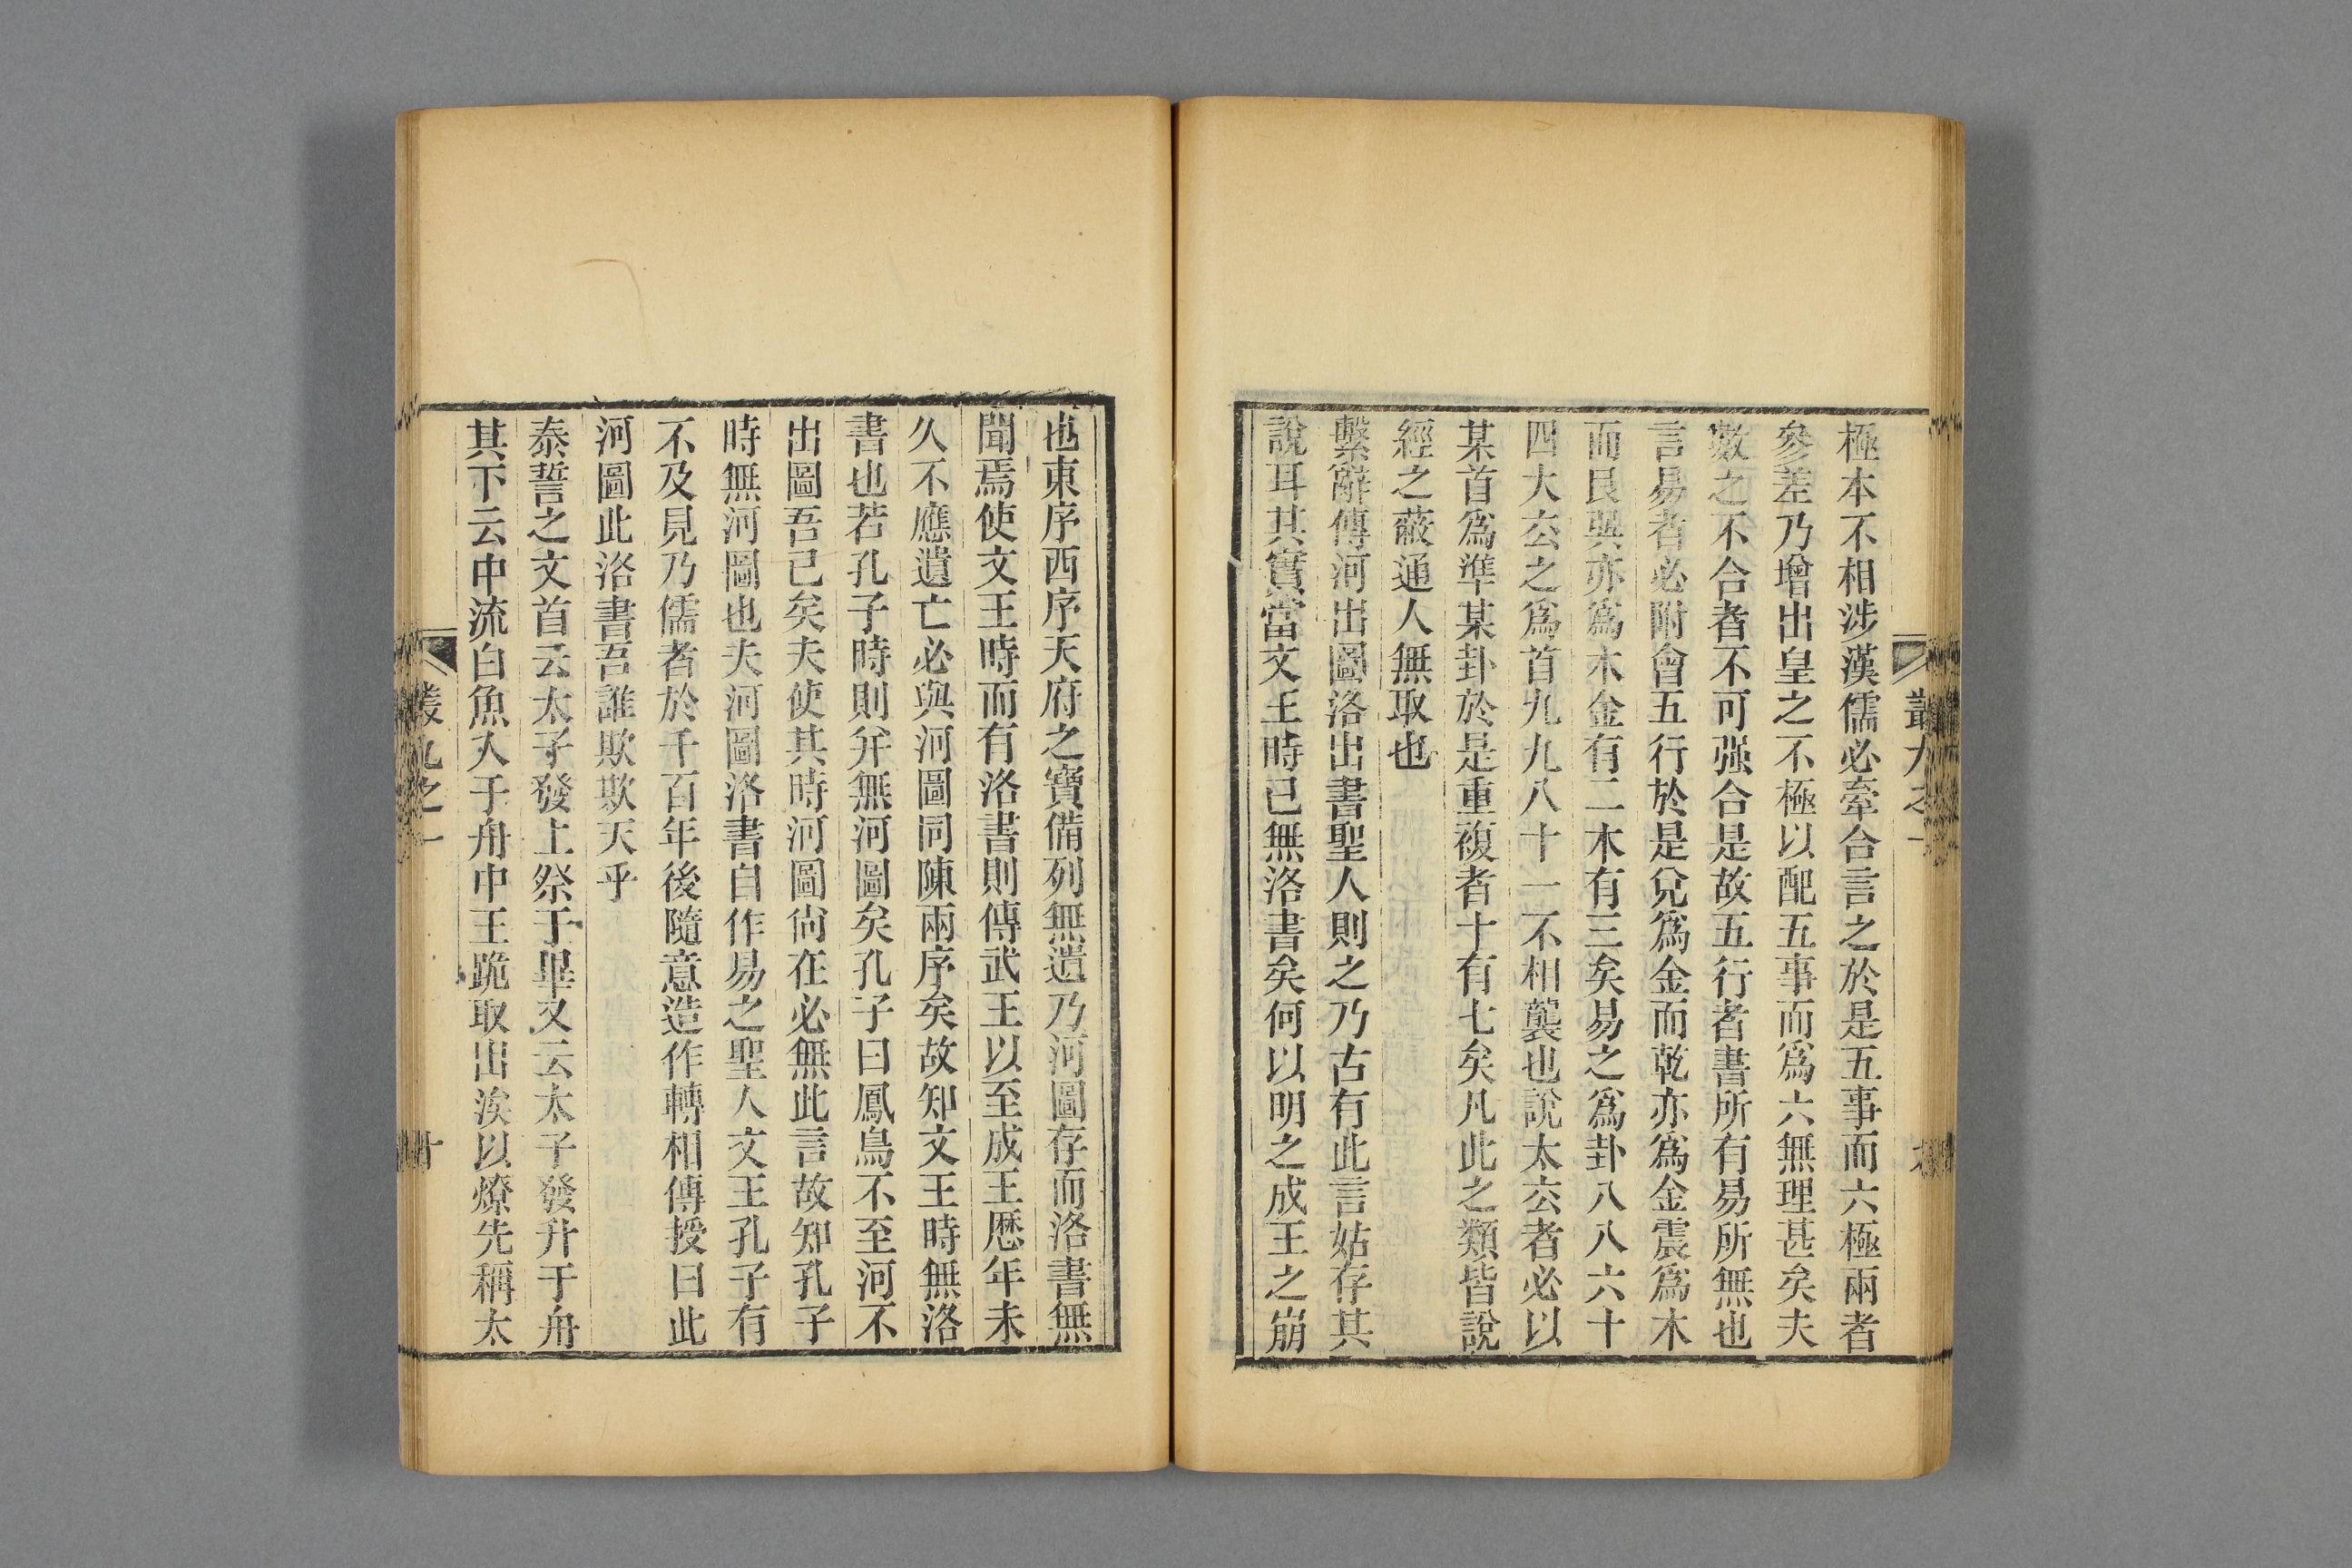 極本不相涉漢儒必牽合言之於是五事而六極兩者
參差乃增出皇之不極以配五事而爲六無理甚矣夫
數之不合者不可强合是故五行者書所有易所無也
言易者必附會五行於是兌爲金而乾亦爲金震爲木
而艮巽亦爲木金有二木有三矣易之爲卦八八六十
四大玄之爲首九九八十一不相襲也說太玄者必以
某首爲準某卦於是重複者十有七矣凡此之類皆說
經之蔽通人無取也
繫辭傳河出圖洛出書聖人則之乃古有此言姑存其
說耳其實當文王時已無洛書矣何以明之成王之崩
也東序西序天府之寶備列無遺乃河圖存而洛書無
聞焉使文王時而有洛書則傳武王以至成王厯年未
久不應遺亡必與河圖同陳兩序矣故知文王時無洛
書也若孔子時則并無河圖矣孔子曰鳳鳥不至河不
出圖吾已矣夫使其時河圖尙在必無此言故知孔子
時無河圖也夫河圖洛書自作易之聖人文王孔子有
不及見乃儒者於千百年後隨意造作轉相傳授曰此
河圖此洛書吾誰欺欺天乎
泰誓之文首云太子發上祭于畢又云太子發升于舟
其下云中流白魚入于舟中王跪取出涘以燎先稱太
叢九之一
十